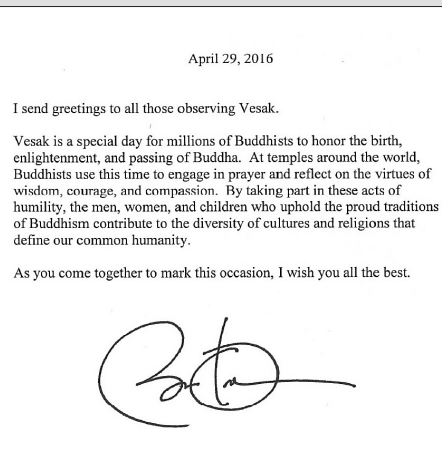 April 29, 2016
I send greetings to all those observing Vesak.
Vesak is a special day for millions of Buddhists to honor the birth,
enlightenment, and passing of Buddha. At temples around the world,
Buddhists use this time to engage in prayer and reflect on the virtues of
wisdom, courage, and compassion. By taking part in these acts of
humility, the men, women, and children who uphold the proud traditions
of Buddhism contribute to the diversity of cultures and religions that
define our common humanity.
As you come together to mark this occasion, I wish you all the best.